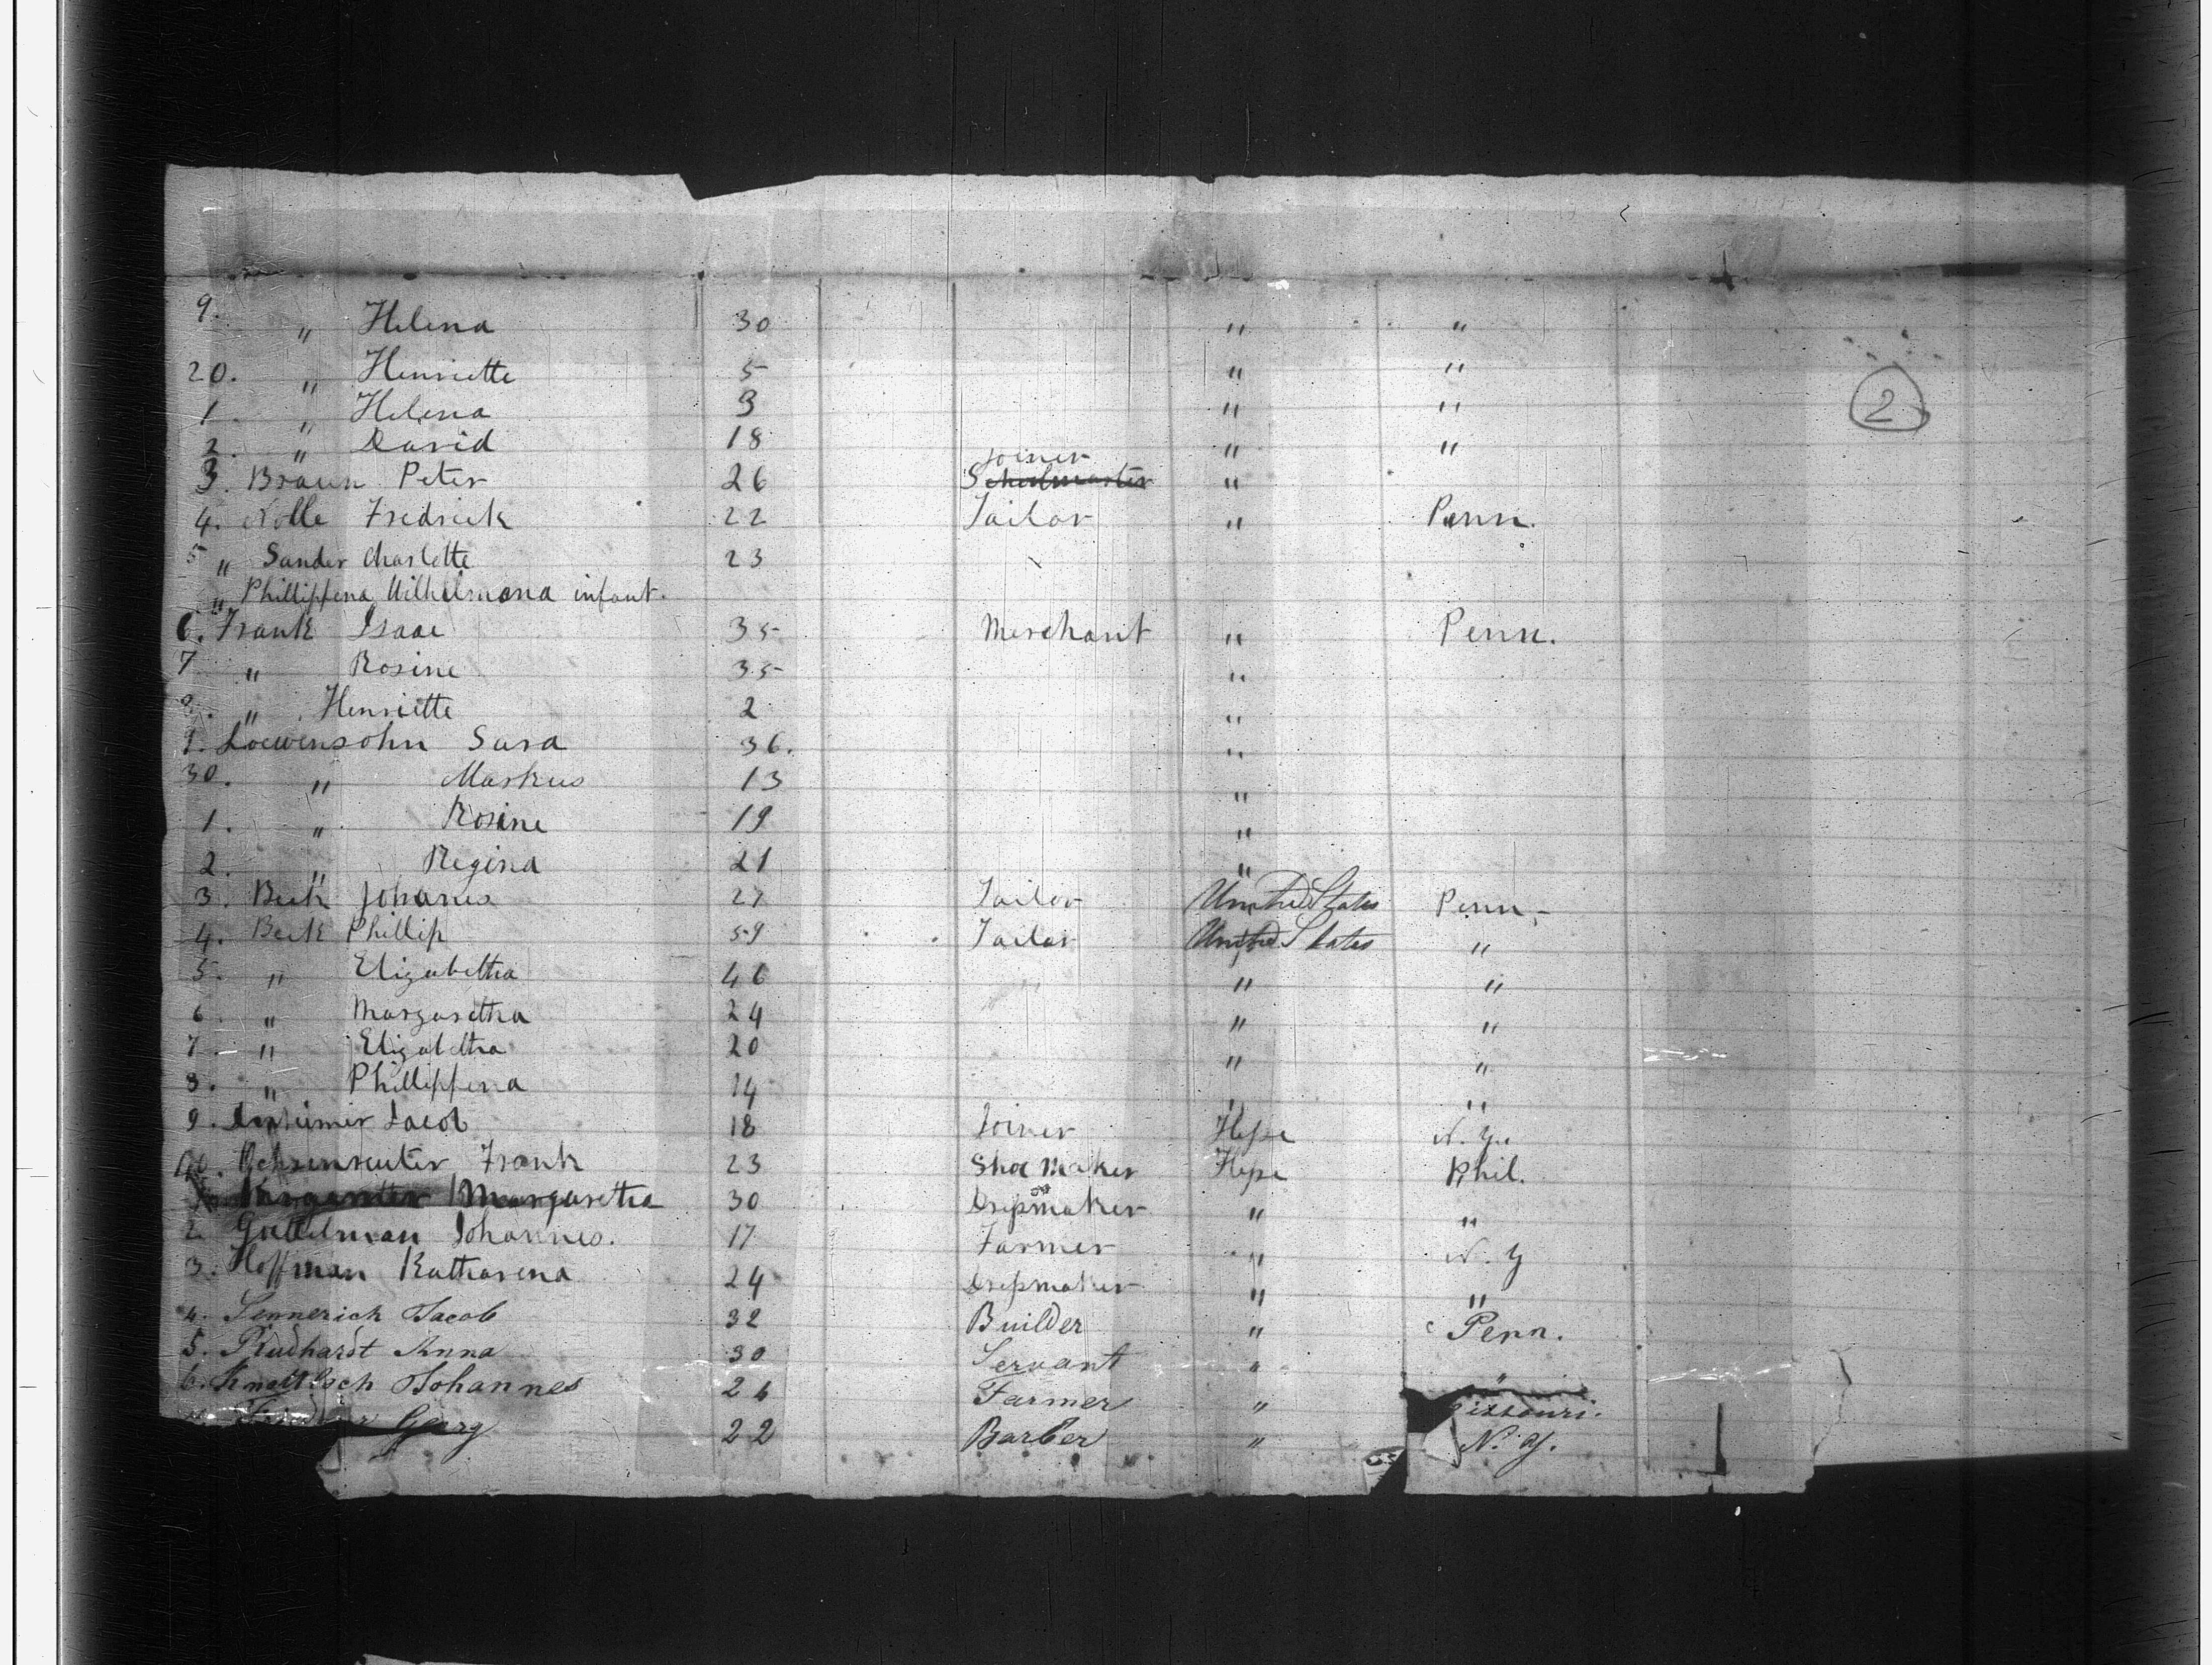 9. " Helena 30 " "
20. " Henriette 5 " "
1. " Helena 3 " "
2. " David 18 " "
2
Joiner
3. Braun Peter 26 Schulmaster "
4. Nolle Fredrick 22 Tailor " Penn.
5 " Sander Charlotte 23
" Phillippena Wilhelmena infant.
6. Frank Isaac 35 Merchant " Penn.
7 " Rosine 35 "
8. " Henriette 2 "
9. Loewensohn Sara 36. "
30. " Markus 13 "
1. " Rosine 19 "
2. " Regina 21 "
3. Beck Johanes 27 Tailor United States Penn.
4. Beck Phillip 59 Tailor United States "
5. " Elizabetha 46 " "
6. " Margaretha 24 " "
7. " Elizabetha 20 " "
8. " Phillippena 14 " "
9. Jacob 18 Joiner Hesse N. Y.
40. Ochsenreuter Frank 23 Shoe Maker Hesse Phil.
Margaretha 30 Dressmaker " "
2. Gattelman Johannes. 17 Farmer " N. Y
3. Hoffman Katharena 24 Dressmaker " "
4. Jacob 32 Builder " Penn.
5. Rudhardt Anna 30 Servant " "
6. Johannes 26 Farmer " issouri.
Georg 22 Barber " N. Y.